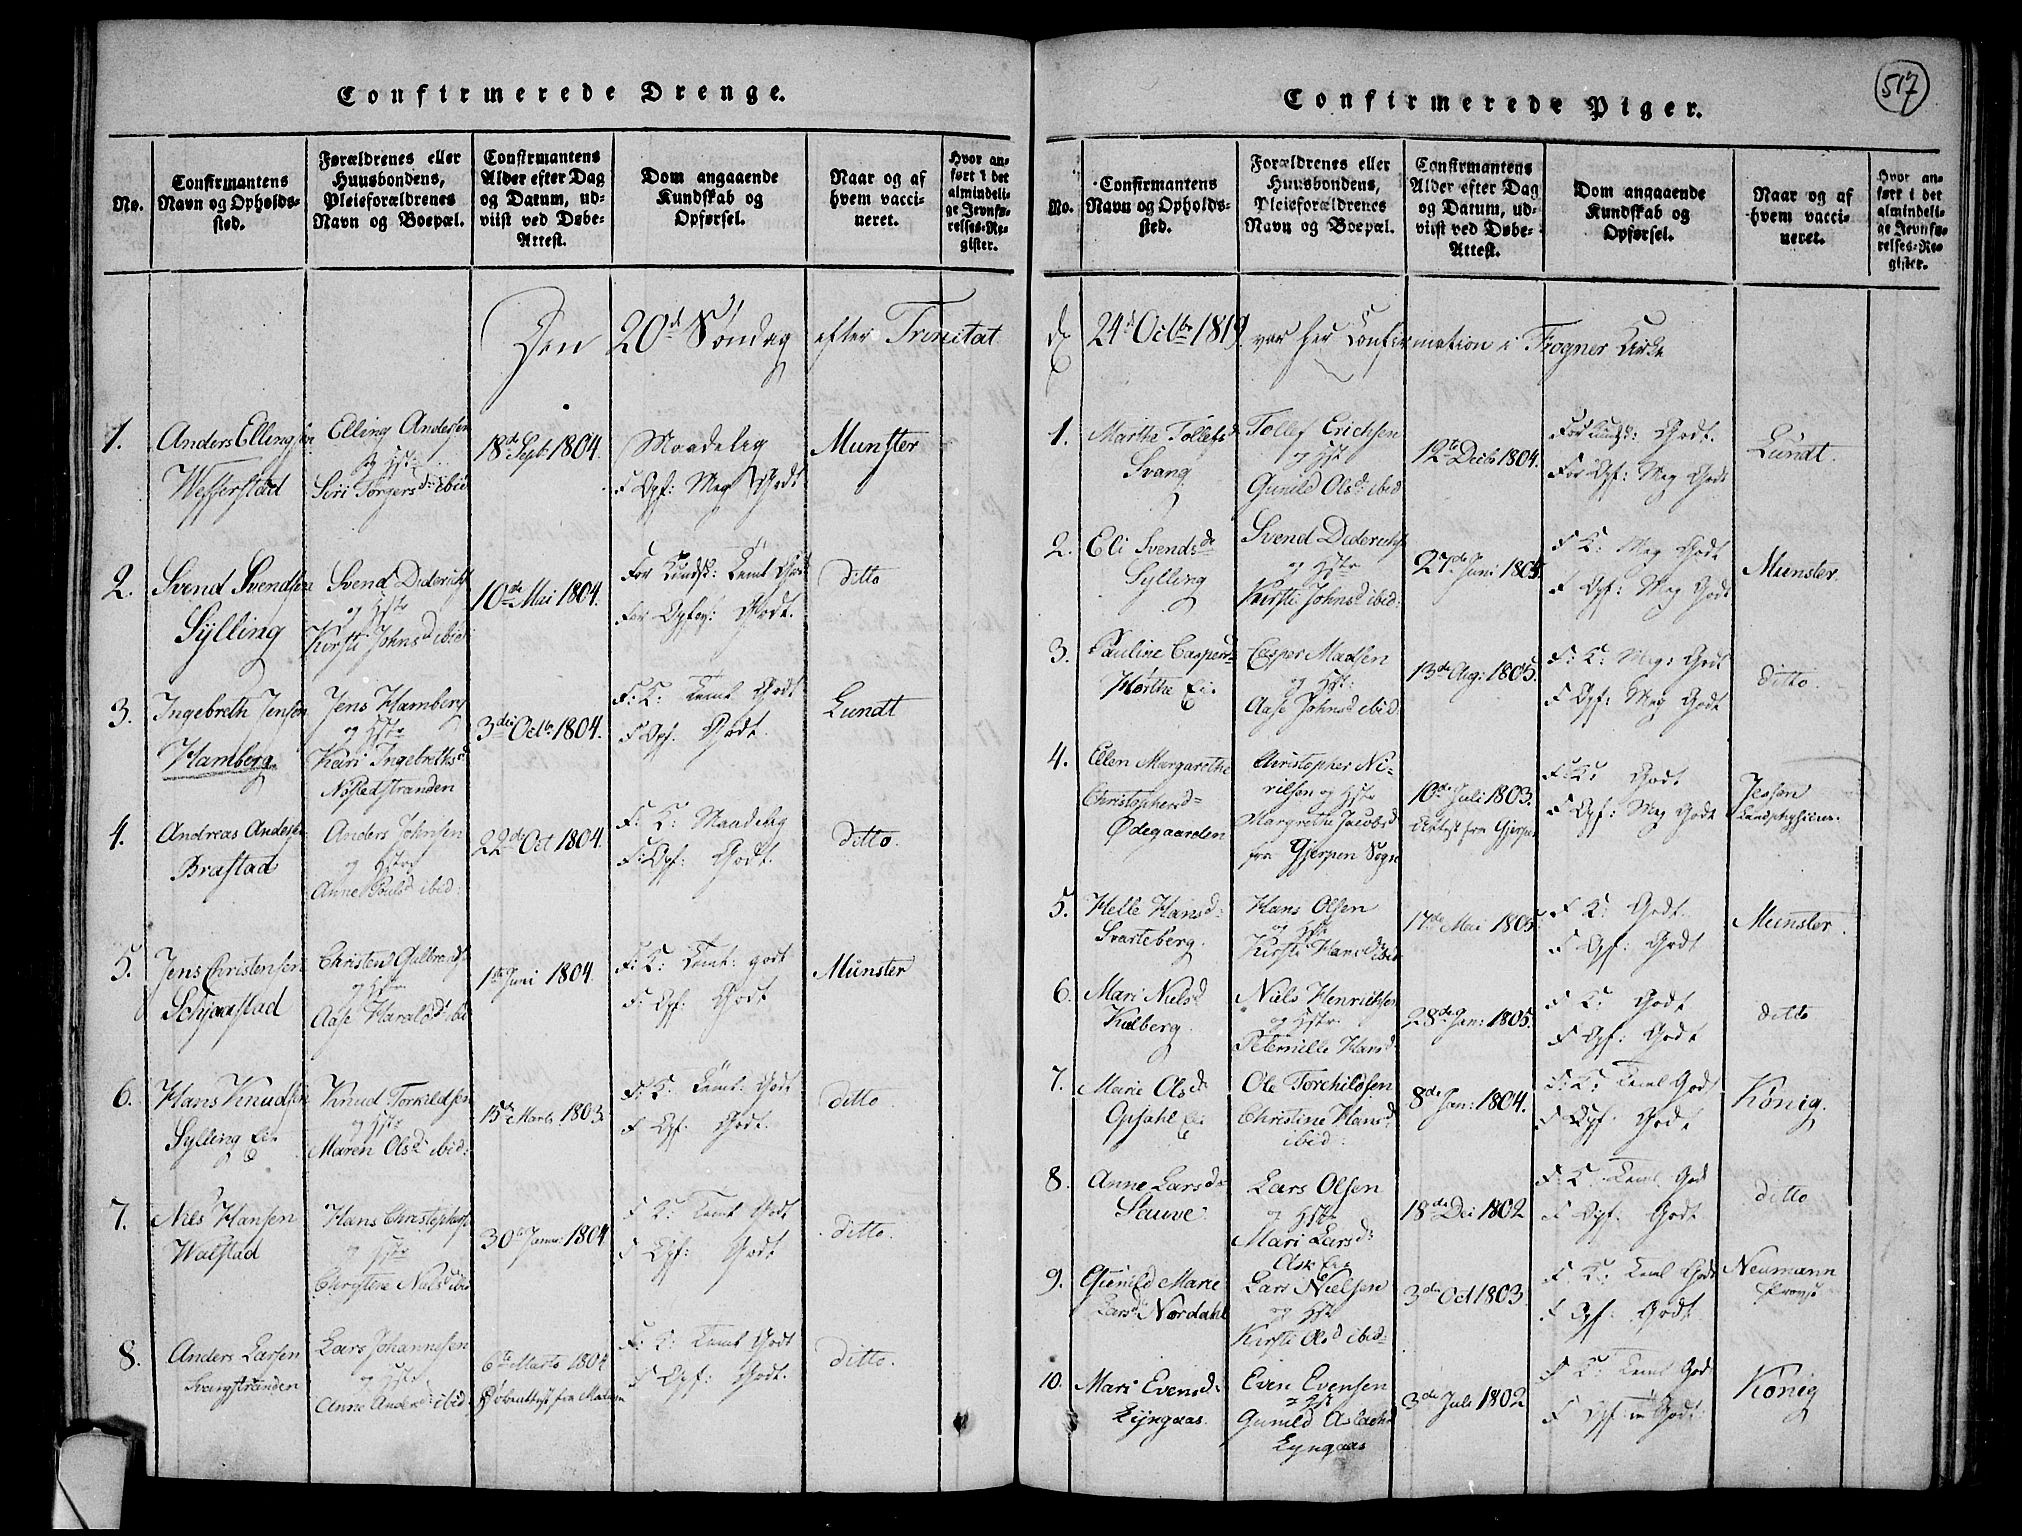 517
Confirmerede Drenge.
No.
Confirmantens
Navn og Opholds-
sted.
Forældrenes eller
Huusbondens,
Pleieforældrenes
Navn og Boepæl.
Confirmantens
Alder efter Dag
og Datum, ud-
viist ved Døbe-
Attest.
Dom angaaende
Kundskab og
Opførsel.
Naar og af
hvem vacci-
neret.
Hvor an-
ført i det
almindeli-
ge Jevnfø-
relses-Re-
gister.
Den 20d Søndag efter Trinitat
1.
Anders Ellingsen
Wefferstad
Elling Andersen
og Hstr
Siri Torgersd: ibid
18de Sept 1804.
Maadelig
F Opf: Meg Godt
Munster
2.
Svend Svendsen
Sylling
Svend Didrichs
og Hstr
Kirsti Johnsd ibid
10de Mai 1804.
For Kundsk: Temt Godt
For Opfør: Godt.
ditto
3.
Ingebreth Jensen
Hamberg
Jens Hamberg
og Hstr
Kari Ingebrethsd
Nøstedstranden
3die Octbr 1804.
F: K: Temt Godt
F Opf. Godt.
Lundt
4.
Andreas Anders
Bræstad
Anders Johnsen
og Hstr
Anne Pouls ibid:
22de Oct 1804.
F: K: Maadelig
F: Opf: Godt.
ditto.
5.
Jens Christensen
Schjørstad
Christen Gulbrands
og Hstr
Aase Haralsd ibid
1ste Juni 1804.
F: K: Temt: godt
F: Opf: Godt
Munster
6.
Hans Knudsen
Sylling Ei
Knud Torkildsen
og Hstr
Maren Olsd ibid:
15de Marts 1803
F: K: Temt: Godt
F Opf: Godt.
ditto
7.
Niels Hansen
Walstad
Hans Christophers
og Hstr
Christene Nielsd ibid
30te Januar 1804
F K: Temt Godt
F Opf: Godt
ditto.
8.
Anders Larsen
Svangstranden
Lars Johannesen
og Hstr
Anne Andersd: ibid
6te Marts 1804
Døbeattest fra Modum
F: K: Temt Godt
F Opf: Godt.
ditto.
Confirmerede Piger.
No.
Confirmantens
Navn og Opholds-
sted.
Forældrenes eller
Huusbondens,
Pleieforældrenes
Navn og Boepæl.
Confirmantens
Alder efter Dag
og Datum, ud-
viist ved Døbe-
Attest.
Dom angaaende
Kundskab og
Opførsel.
Naar og af
hvem vacci-
neret.
Hvor an-
ført i det
almindeli-
ge Jevnfø-
relses-Re-
gister.
d 24d Octbr 1819. var her Confirmation i Frogner Kirke
1.
Marthe Tollefsd
Svang
Tollef Erichsen
og Hstr
Gunild Olsd ibid
12te Decb 1804.
For Kundsk: Godt.
For Opf: Meg Godt
Lundt.
2.
Eli Svendsde
Sylling
Svend Diderichs
og Hstr
Kirsti Johnsd ibid:
27de Juni 1805.
F K: Meg Godt
F Opf: Meg Godt
Munster.
3.
Pauline Caspersd
Hørthe Ei.
Casper Madsen
og Hstr:
Aase Johnsd ibid
13de Aug: 1805.
F: K: Meg: Godt
F Opf: Meg Godt
ditto.
4.
Elen Margarethe
Christophersd=
Ødegaarden
Christopher Ni-
rilsen og Hstr
Margrethe Jacobsd
fra Gjerpen Sogn
10de Juli 1803.
Attest fra Gjerpen
F: K: Godt
F Opf: Meg Godt
Jessen
Landphysicus.
5.
Helle Hansd:
Svarteberg.
Hans Olsen
og Hstr
Kirsti Hansd ibid
17de Mai 1805.
F K: Godt.
F Opf: Godt
Munster.
6.
Mari Nielsd
Kulberg.
Niels Henrichsen
og Hstr.
Petemille Hansd
28de Jan: 1805.
F K: Godt
F Opf: Godt
ditto
7.
Marie Olsd
Opsahl Ei
Ole Torchildsen
Christine Hansd
ibid:
8de Jan: 1804.
F: K: Temt Godt
F Opf: Godt
König.
8.
Anne Larsd:
Stauve:
Lars Olsen
og Hstr
Mari Larsd:
Ask Ei
18de Dec 1802
F K: Temt Godt
F Opf: Godt
ditto
9.
Gunild Marie
Larsd Nordahl
Lars Nielsen
og Hstr
Kirsti Olsd ibid=
3die Oct 1803.
F K: Temt Godt
F Opf: Godt.
Neumann
Provst
10.
Mari Evensd:
Lyngaas.
Even Evensen
og Hstr
Gunild Aslachsd
Lyngaas
3die Juli 1802
F K: Temt Godt
F Opf: Godt:
König